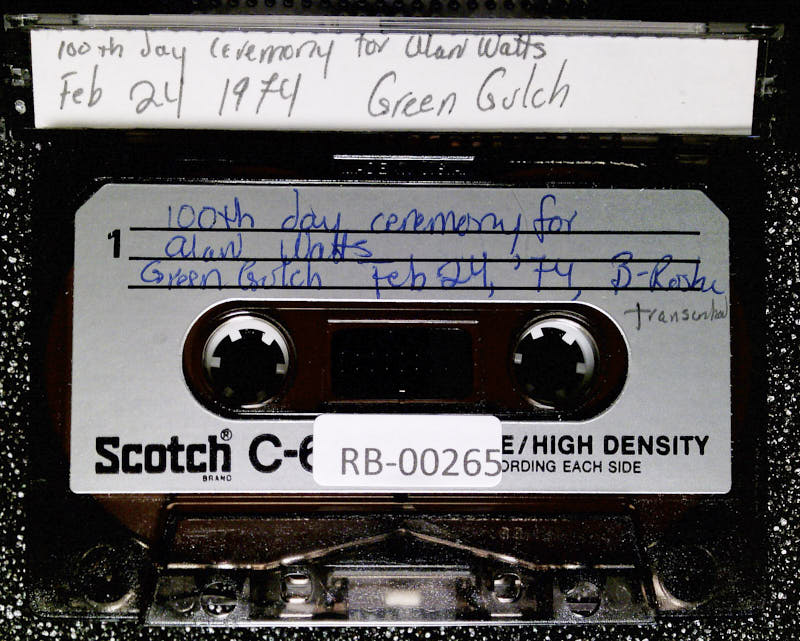 100th day ceremony for Alan Watts
Feb 24 1974 Green Gulch
1
100th day ceremony for
Alan Watts
Green Gulch Feb 24, '74, B-Roshi
transcribed
Scotch® C-6
BRAND
RB-00265
E/HIGH DENSITY
ORDING EACH SIDE